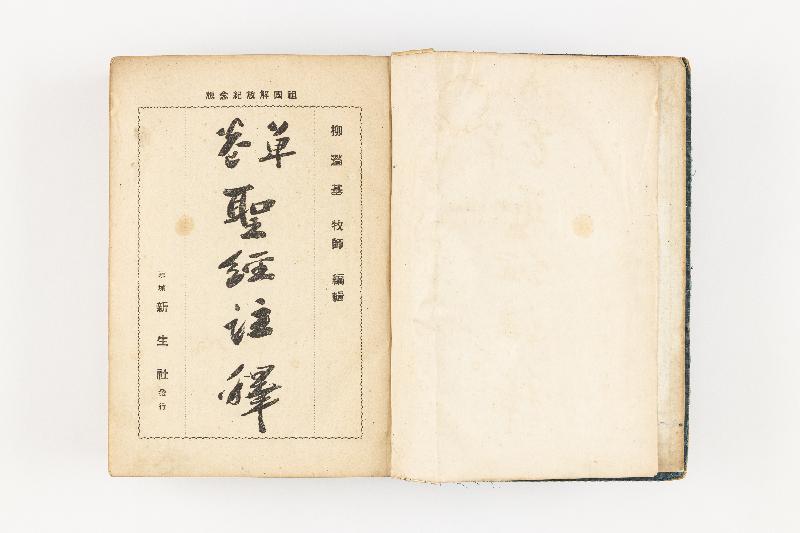 祖國解放紀念版
柳瀅基 牧師 編輯
単卷
聖經註釋
京城 新生社 發行